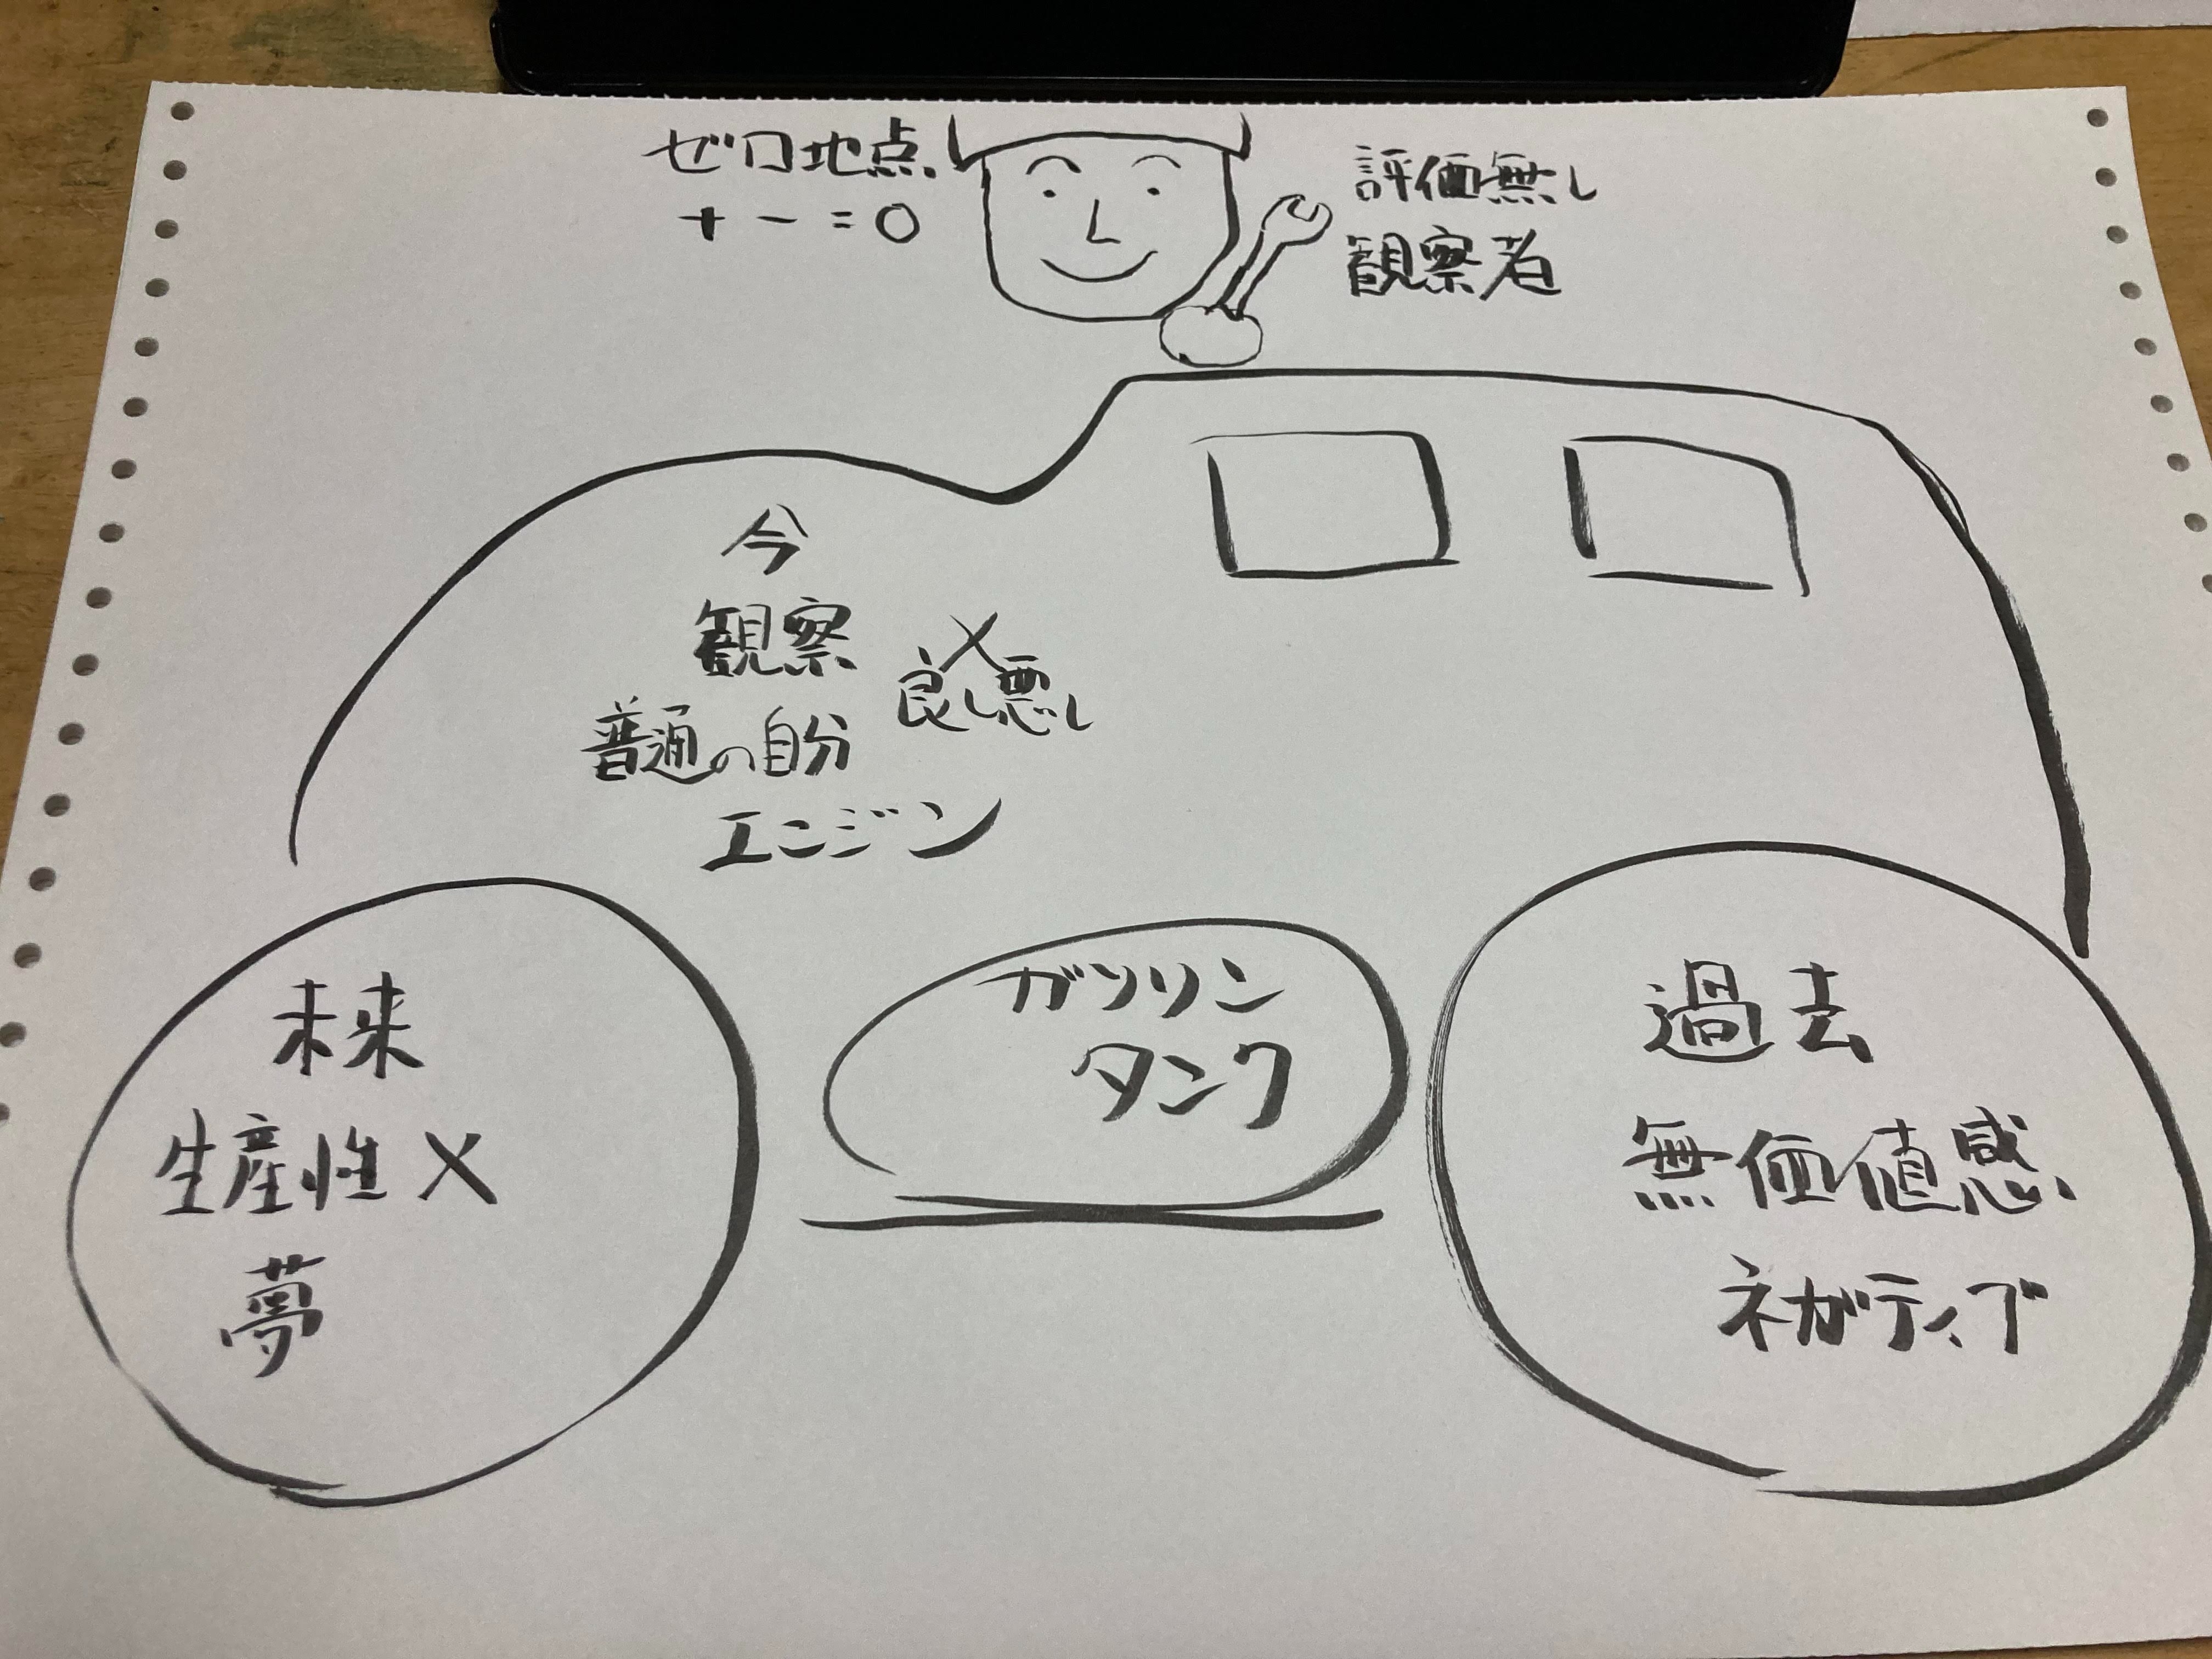 ゼロ地点
+ - = 0
評価無し
観察者
今
観察
×
良し悪し
普通の自分
エンジン
未来
生産性 ×
夢
ガソリン
タンク
過去
無価値感
ネガティブ